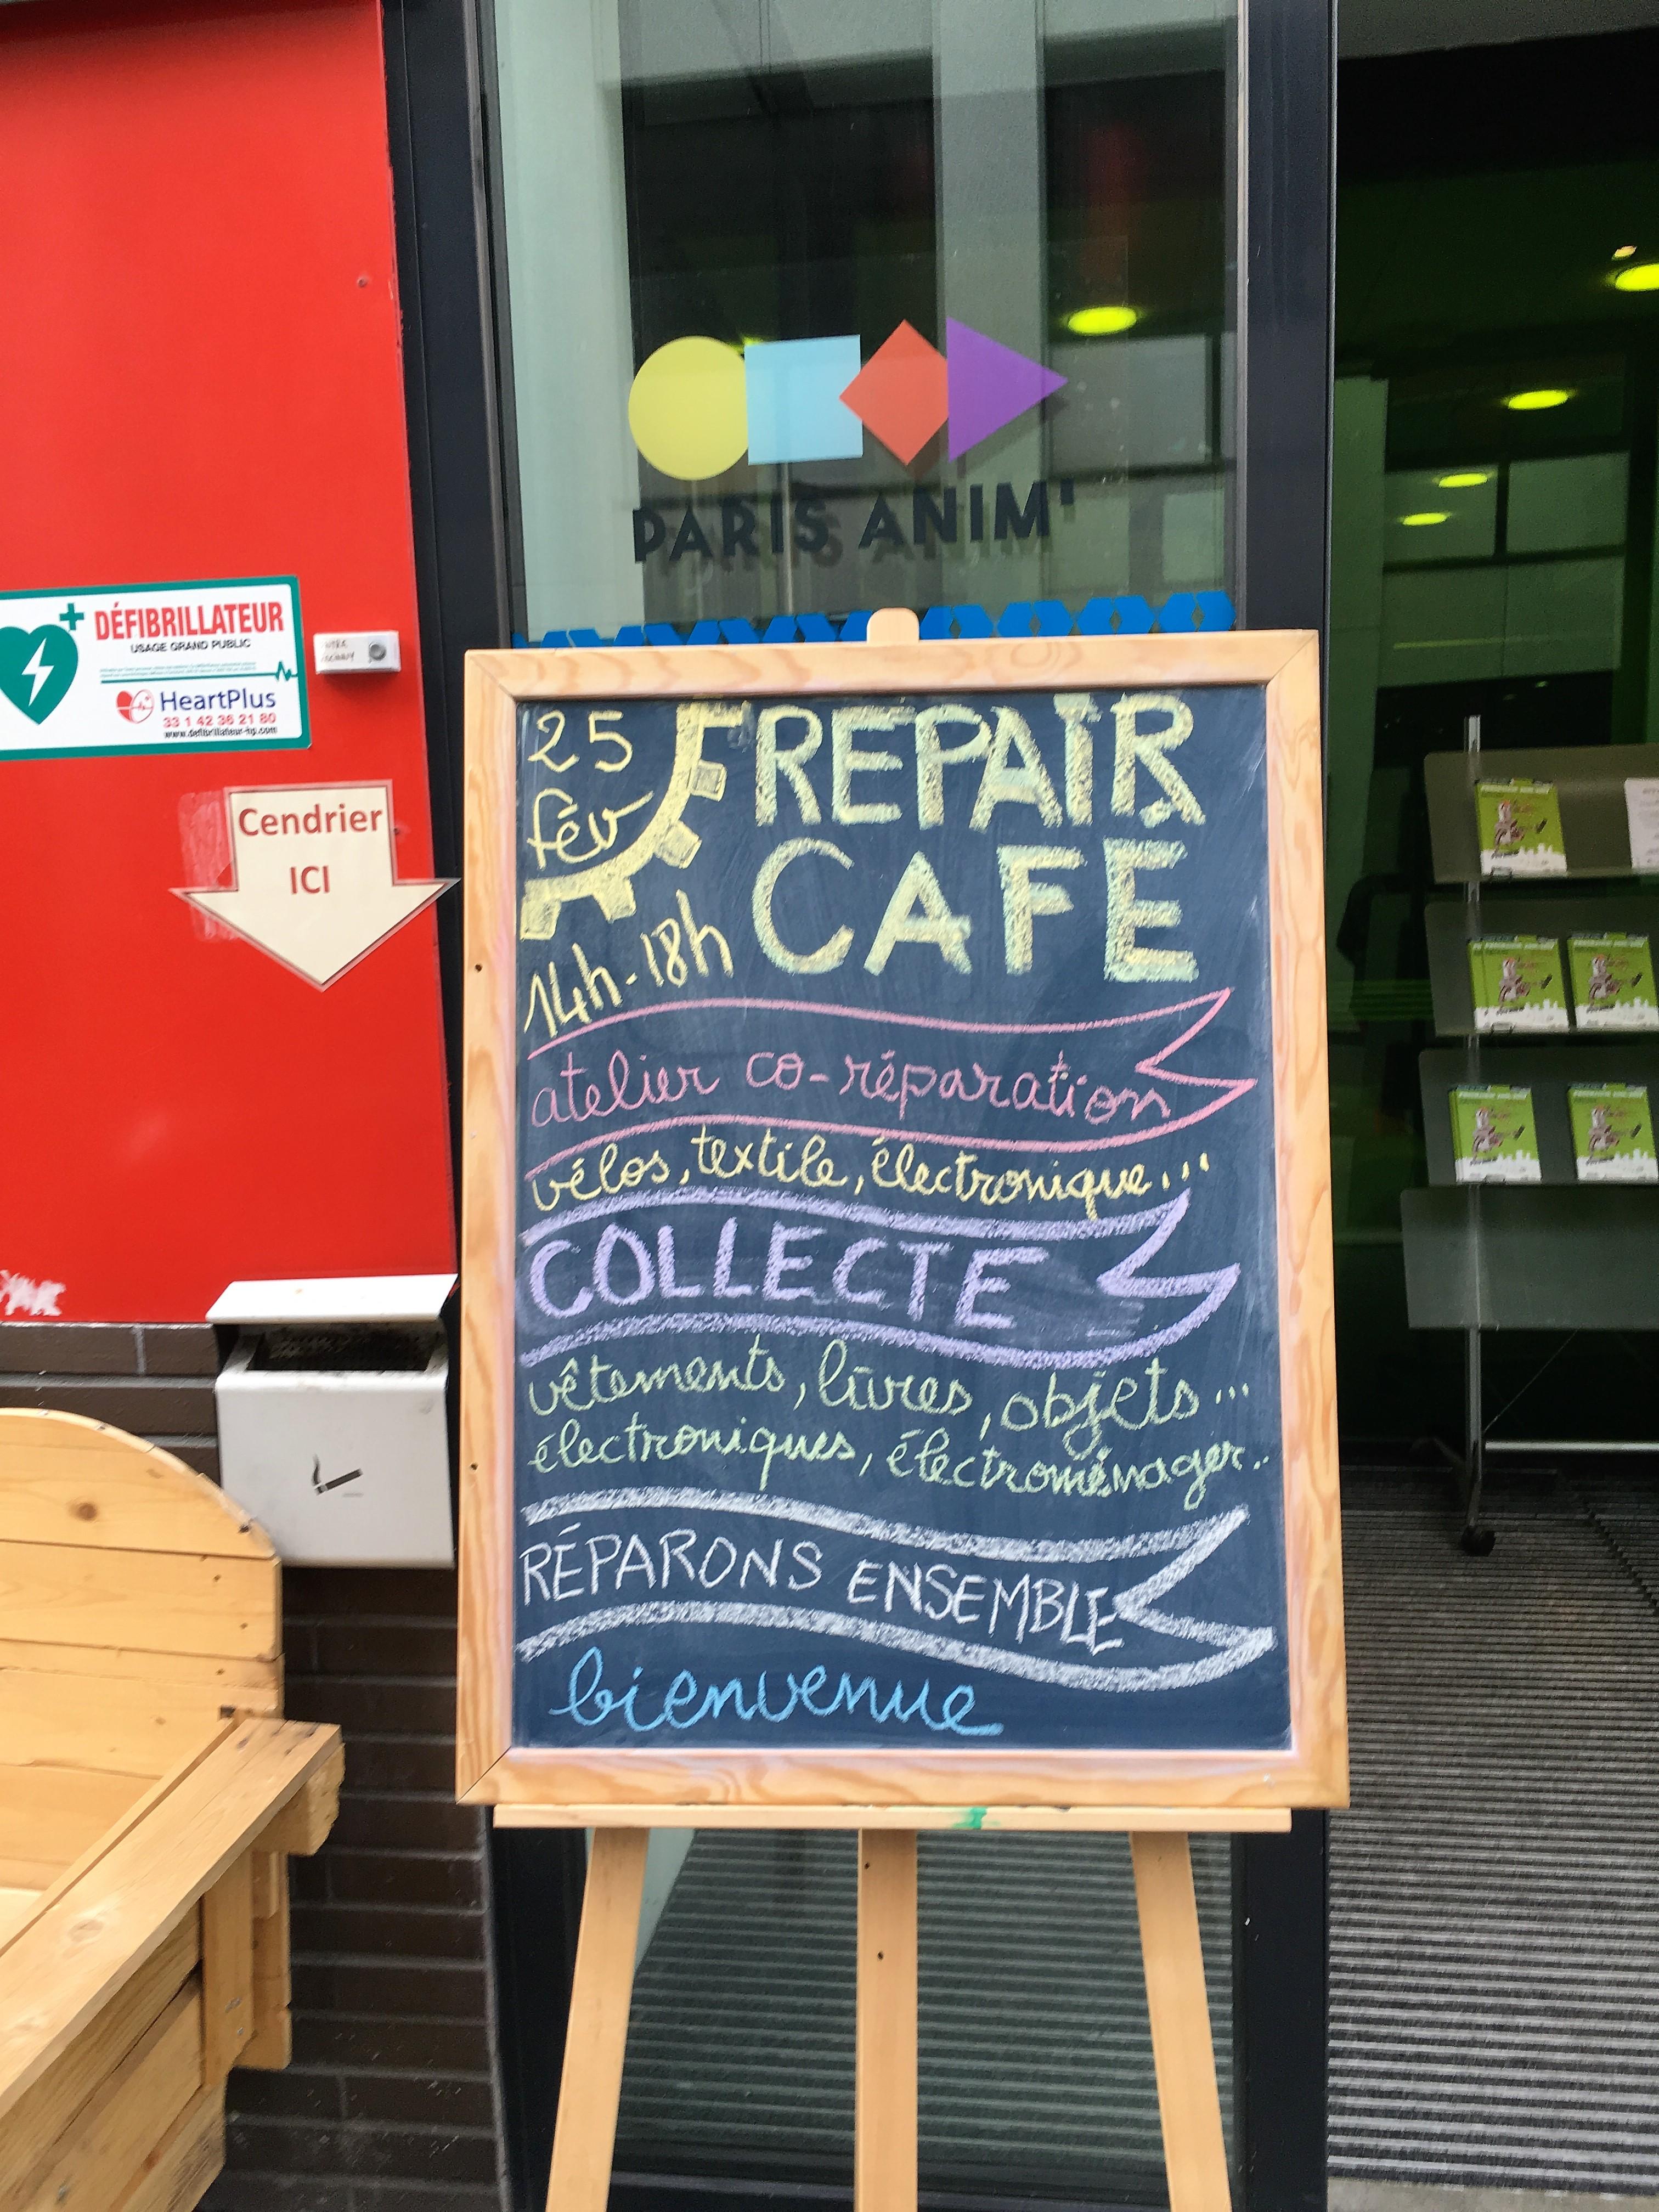 PARIS ANIM'
DÉFIBRILLATEUR
USAGE GRAND PUBLIC
HeartPlus
33 1 42 36 21 80
www.defibrillateur-hp.com
Cendrier
ICI
25
fév
14h-18h
REPAIR
CAFE
atelier co-réparation
vélos, textile, électronique...
COLLECTE
vêtements, livres, objets...
électroniques, électroménager..
RÉPARONS ENSEMBLE
bienvenue